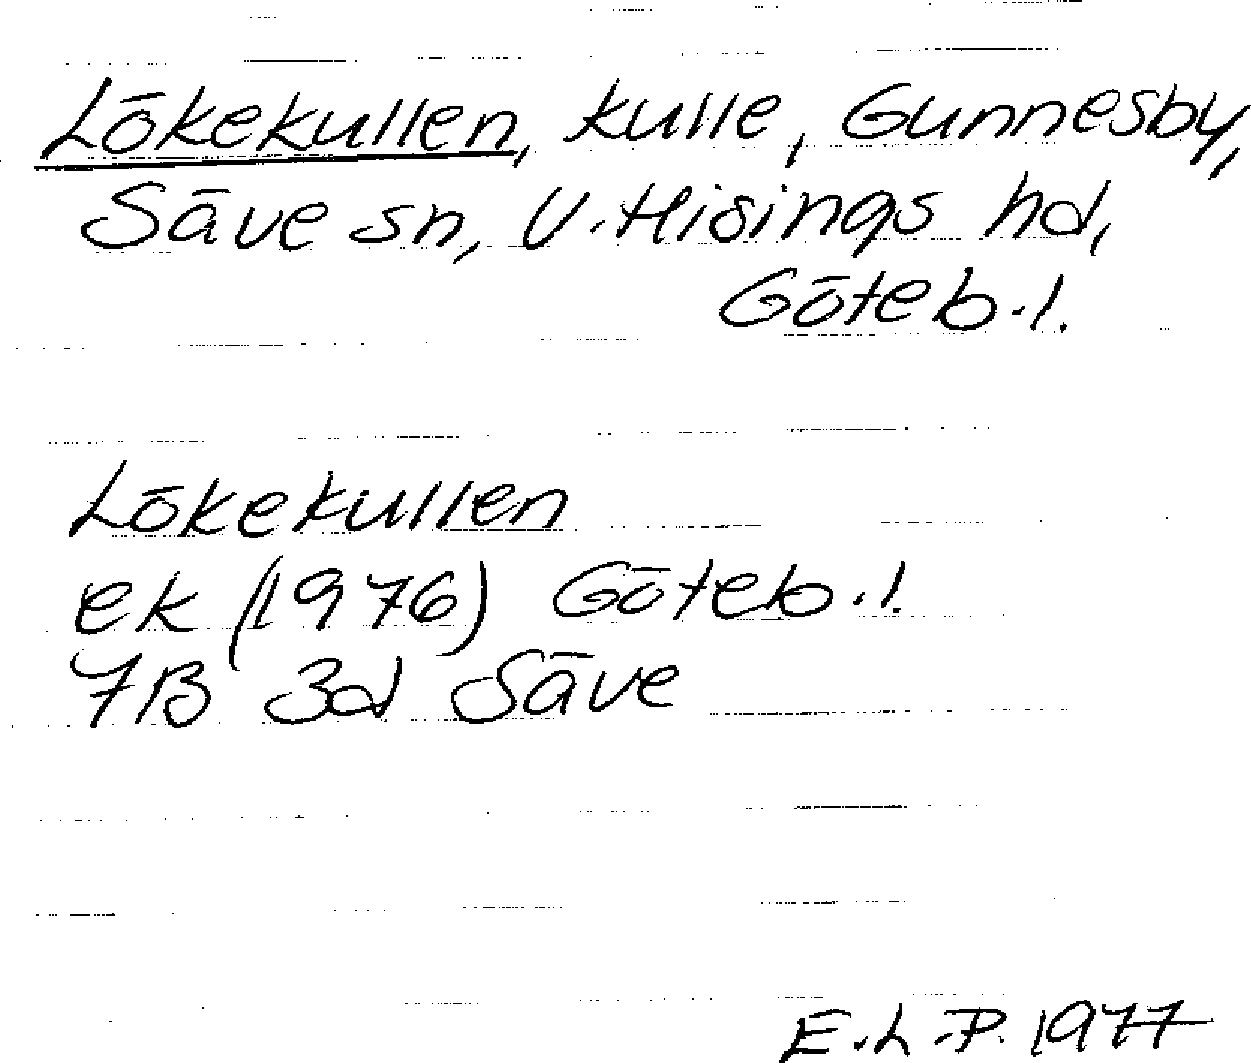 Lökekullen, kulle, Gunnesby,
Säve sn, V. Hisings hd,
Göteb. l.
Lökekullen
ek (1976) Göteb. l.
7B 3d Säve
E.L.P. 1977